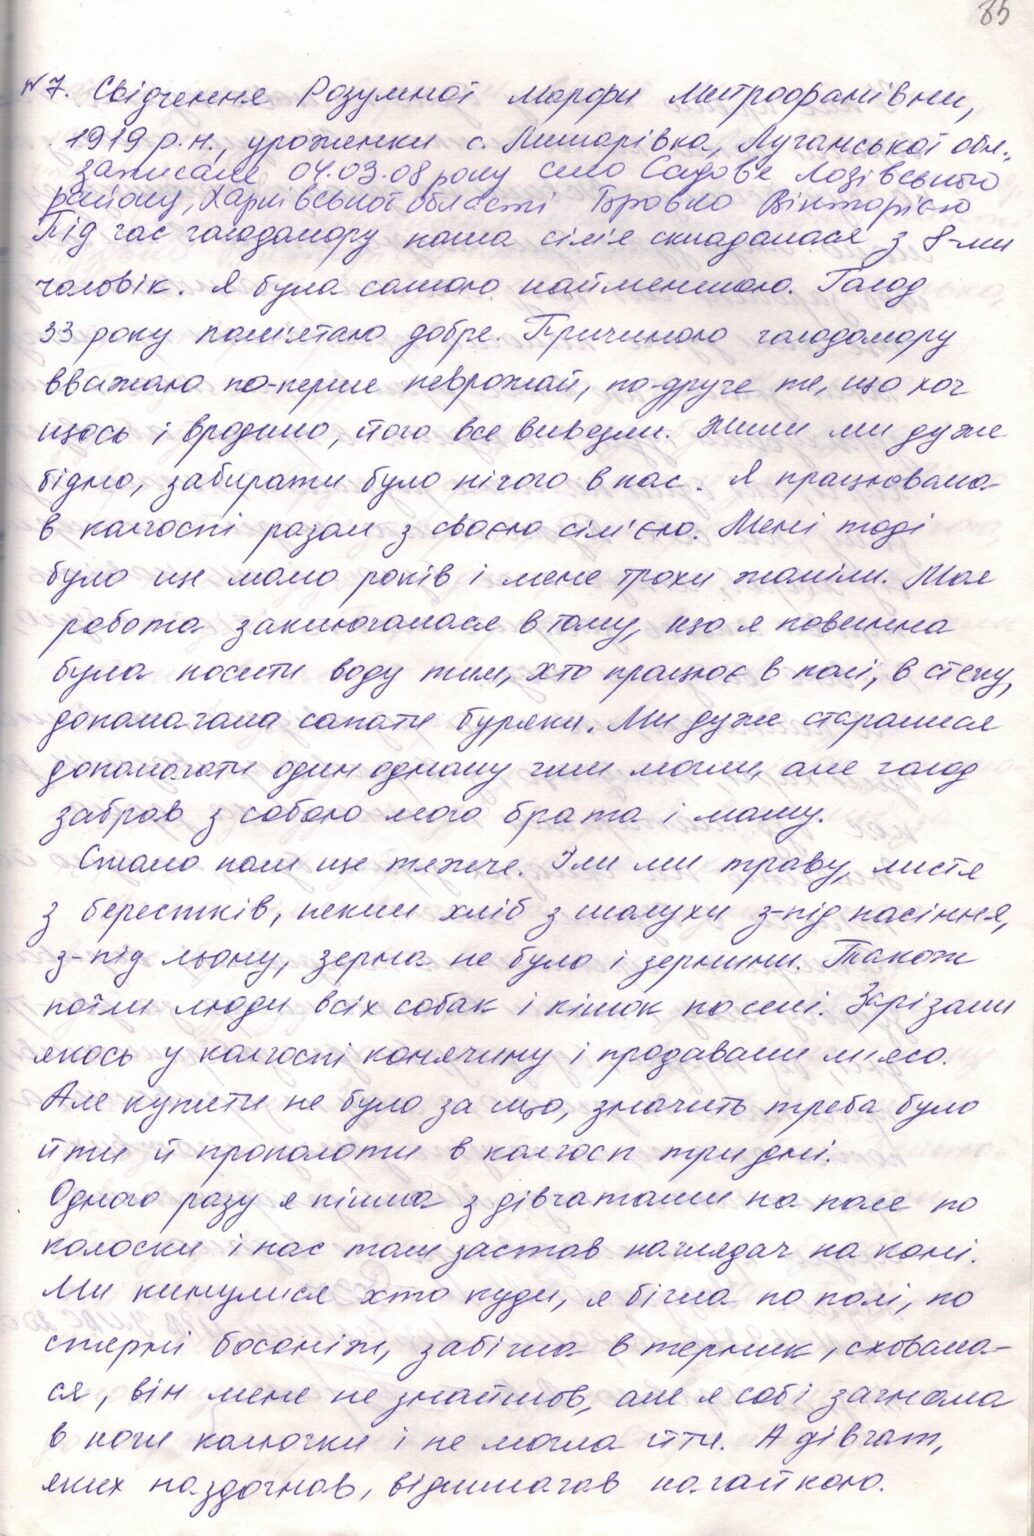 85
№7. Свідчення Розумної Марфи Митрофанівни,
1919 р.н., уроженки с. Лимарівка, Луганської обл.,
записале 04.03.08 року село Садове Лозівського
району, Харківської області Бровко Вікторією
Під час голодомору наша сім'я складалася з 8-ми
чоловік. Я була самою найменшою. Голод
33 року пам'ятаю добре. Причиною голодомору
вважаю по-перше неврожай, по-друге те, що хоч
щось і вродило, його все вивезли. Жили ми дуже
бідно, забирати було нічого в нас. Я працювала
в колгоспі разом з своєю сім'єю. Мені тоді
було ще мало років і мене трохи жаліли. Моя
робота заключалася в тому, що я повинна
була носити воду тим, хто працює в полі, в степу,
допомагала сапати буряки. Ми дуже старалися
допомагати один одному чим могли, але голод
забрав з собою мого брата і маму.
Стало нам ще тяжче. Їли ми траву, листя
з берестків, пекли хліб з шалухи з-під насіння,
з-під льону, зерна не було і зернини. Також
поїли люди всіх собак і кішок по селі. Зарізали
якось у колгоспі конячину і продавали м'ясо.
Але купити не було за що, значить треба було
йти й прополоти в колгосп три дні.
Одного разу я пішла з дівчатами на поле по
колоски і нас там застав наглядач на коні.
Ми кинулися хто куди, я бігла по полі, по
стерні босоніж, забігла в терник, сховала-
ся, він мене не знайшов, але я собі загнала
в ноги колючки і не могла йти. А дівчат,
яких наздогнав, відшмагав нагайкою.